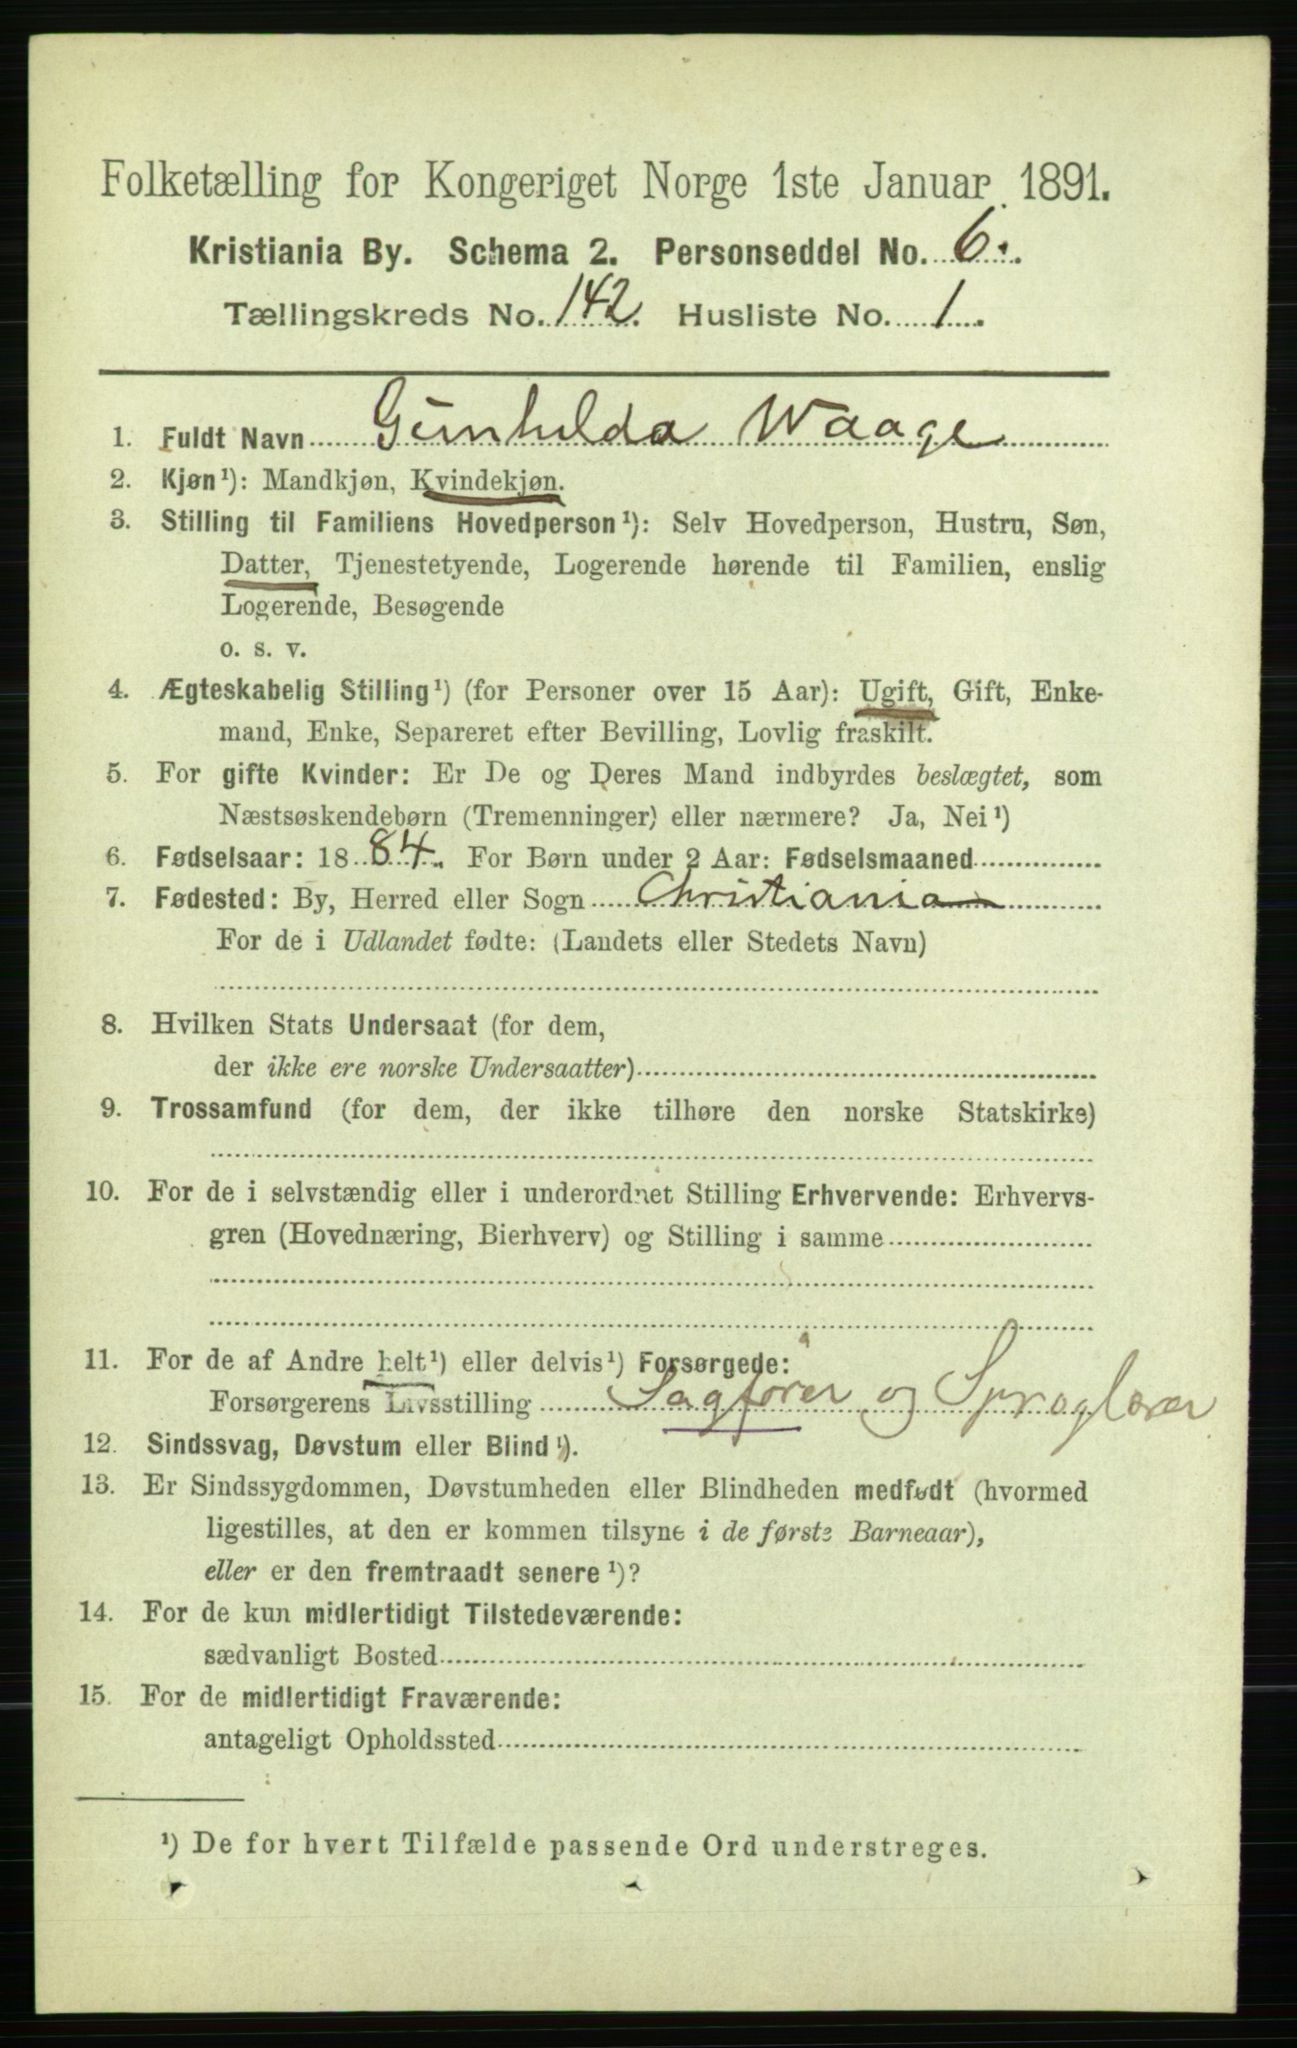 Folketælling for Kongeriget Norge 1ste Januar 1891.
Kristiania By. Schema 2. Personseddel No. 6.
Tællingskreds No. 142. Husliste No. 1.
1. Fuldt Navn Gunhilda Waage
2. Kjøn¹): Mandkjøn, Kvindekjøn.
3. Stilling til Familiens Hovedperson¹): Selv Hovedperson, Hustru, Søn,
Datter, Tjenestetyende, Logerende hørende til Familien, enslig
Logerende, Besøgende
o. s. v.
4. Ægteskabelig Stilling¹) (for Personer over 15 Aar): Ugift, Gift, Enke-
mand, Enke, Separeret efter Bevilling, Lovlig fraskilt.
5. For gifte Kvinder: Er De og Deres Mand indbyrdes beslægtet, som
Næstsøskendebørn (Tremenninger) eller nærmere? Ja, Nei¹)
6. Fødselsaar: 1884. For Børn under 2 Aar: Fødselsmaaned
7. Fødested: By, Herred eller Sogn Christiania
For de i Udlandet fødte: (Landets eller Stedets Navn)
8. Hvilken Stats Undersaat (for dem,
der ikke ere norske Undersaatter)
9. Trossamfund (for dem, der ikke tilhøre den norske Statskirke)
10. For de i selvstændig eller i underordnet Stilling Erhvervende: Erhvervs-
gren (Hovednæring, Bierhverv) og Stilling i samme
11. For de af Andre helt¹) eller delvis¹) Forsørgede:
Forsørgerens Livsstilling Sagfører og Sproglærer
12. Sindssvag, Døvstum eller Blind¹).
13. Er Sindssygdommen, Døvstumheden eller Blindheden medfødt (hvormed
ligestilles, at den er kommen tilsyne i de første Barneaar),
eller er den fremtraadt senere¹)?
14. For de kun midlertidigt Tilstedeværende:
sædvanligt Bosted
15. For de midlertidigt Fraværende:
antageligt Opholdssted
¹) De for hvert Tilfælde passende Ord understreges.